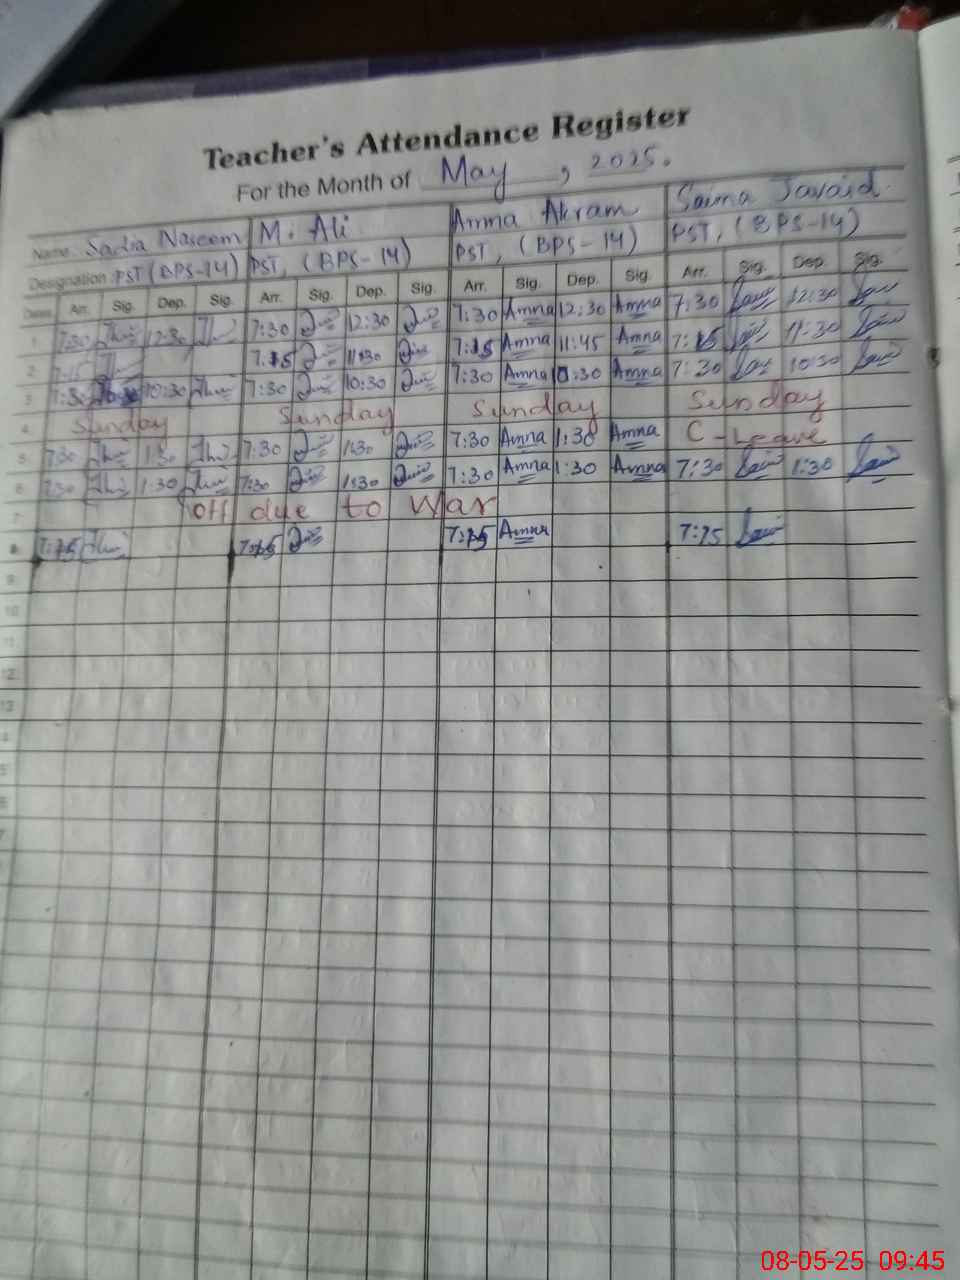 Teacher's Attendance Register
For the Month of May, 2025.
Name Sadia Naseem M. Ali Amna Akram Saima Javaid
Designation PST (BPS-14) PST, (BPS-14) PST, (BPS-14) PST, (BPS-14)
Dates Arr. Sig. Dep. Sig. Arr. Sig. Dep. Sig. Arr. Sig. Dep. Sig. Arr. Sig. Dep. Sig.
1 7:30 12:30 7:30 12:30 7:30 Amna 12:30 Amna 7:30 12:30
2 7:15 7:15 11:30 7:15 Amna 11:45 Amna 7:15 11:30
3 7:30 10:30 7:30 10:30 7:30 Amna 10:30 Amna 7:30 10:30
4 Sunday Sunday Sunday Sunday
5 7:30 1:30 7:30 1:30 7:30 Amna 1:30 Amna C-Leave
6 7:30 1:30 7:30 1:30 7:30 Amna 1:30 Amna 7:30 1:30
7 Off due to War
8 7:15 7:15 7:15 Amna 7:15
9
10
11
12
13
08-05-25 09:45